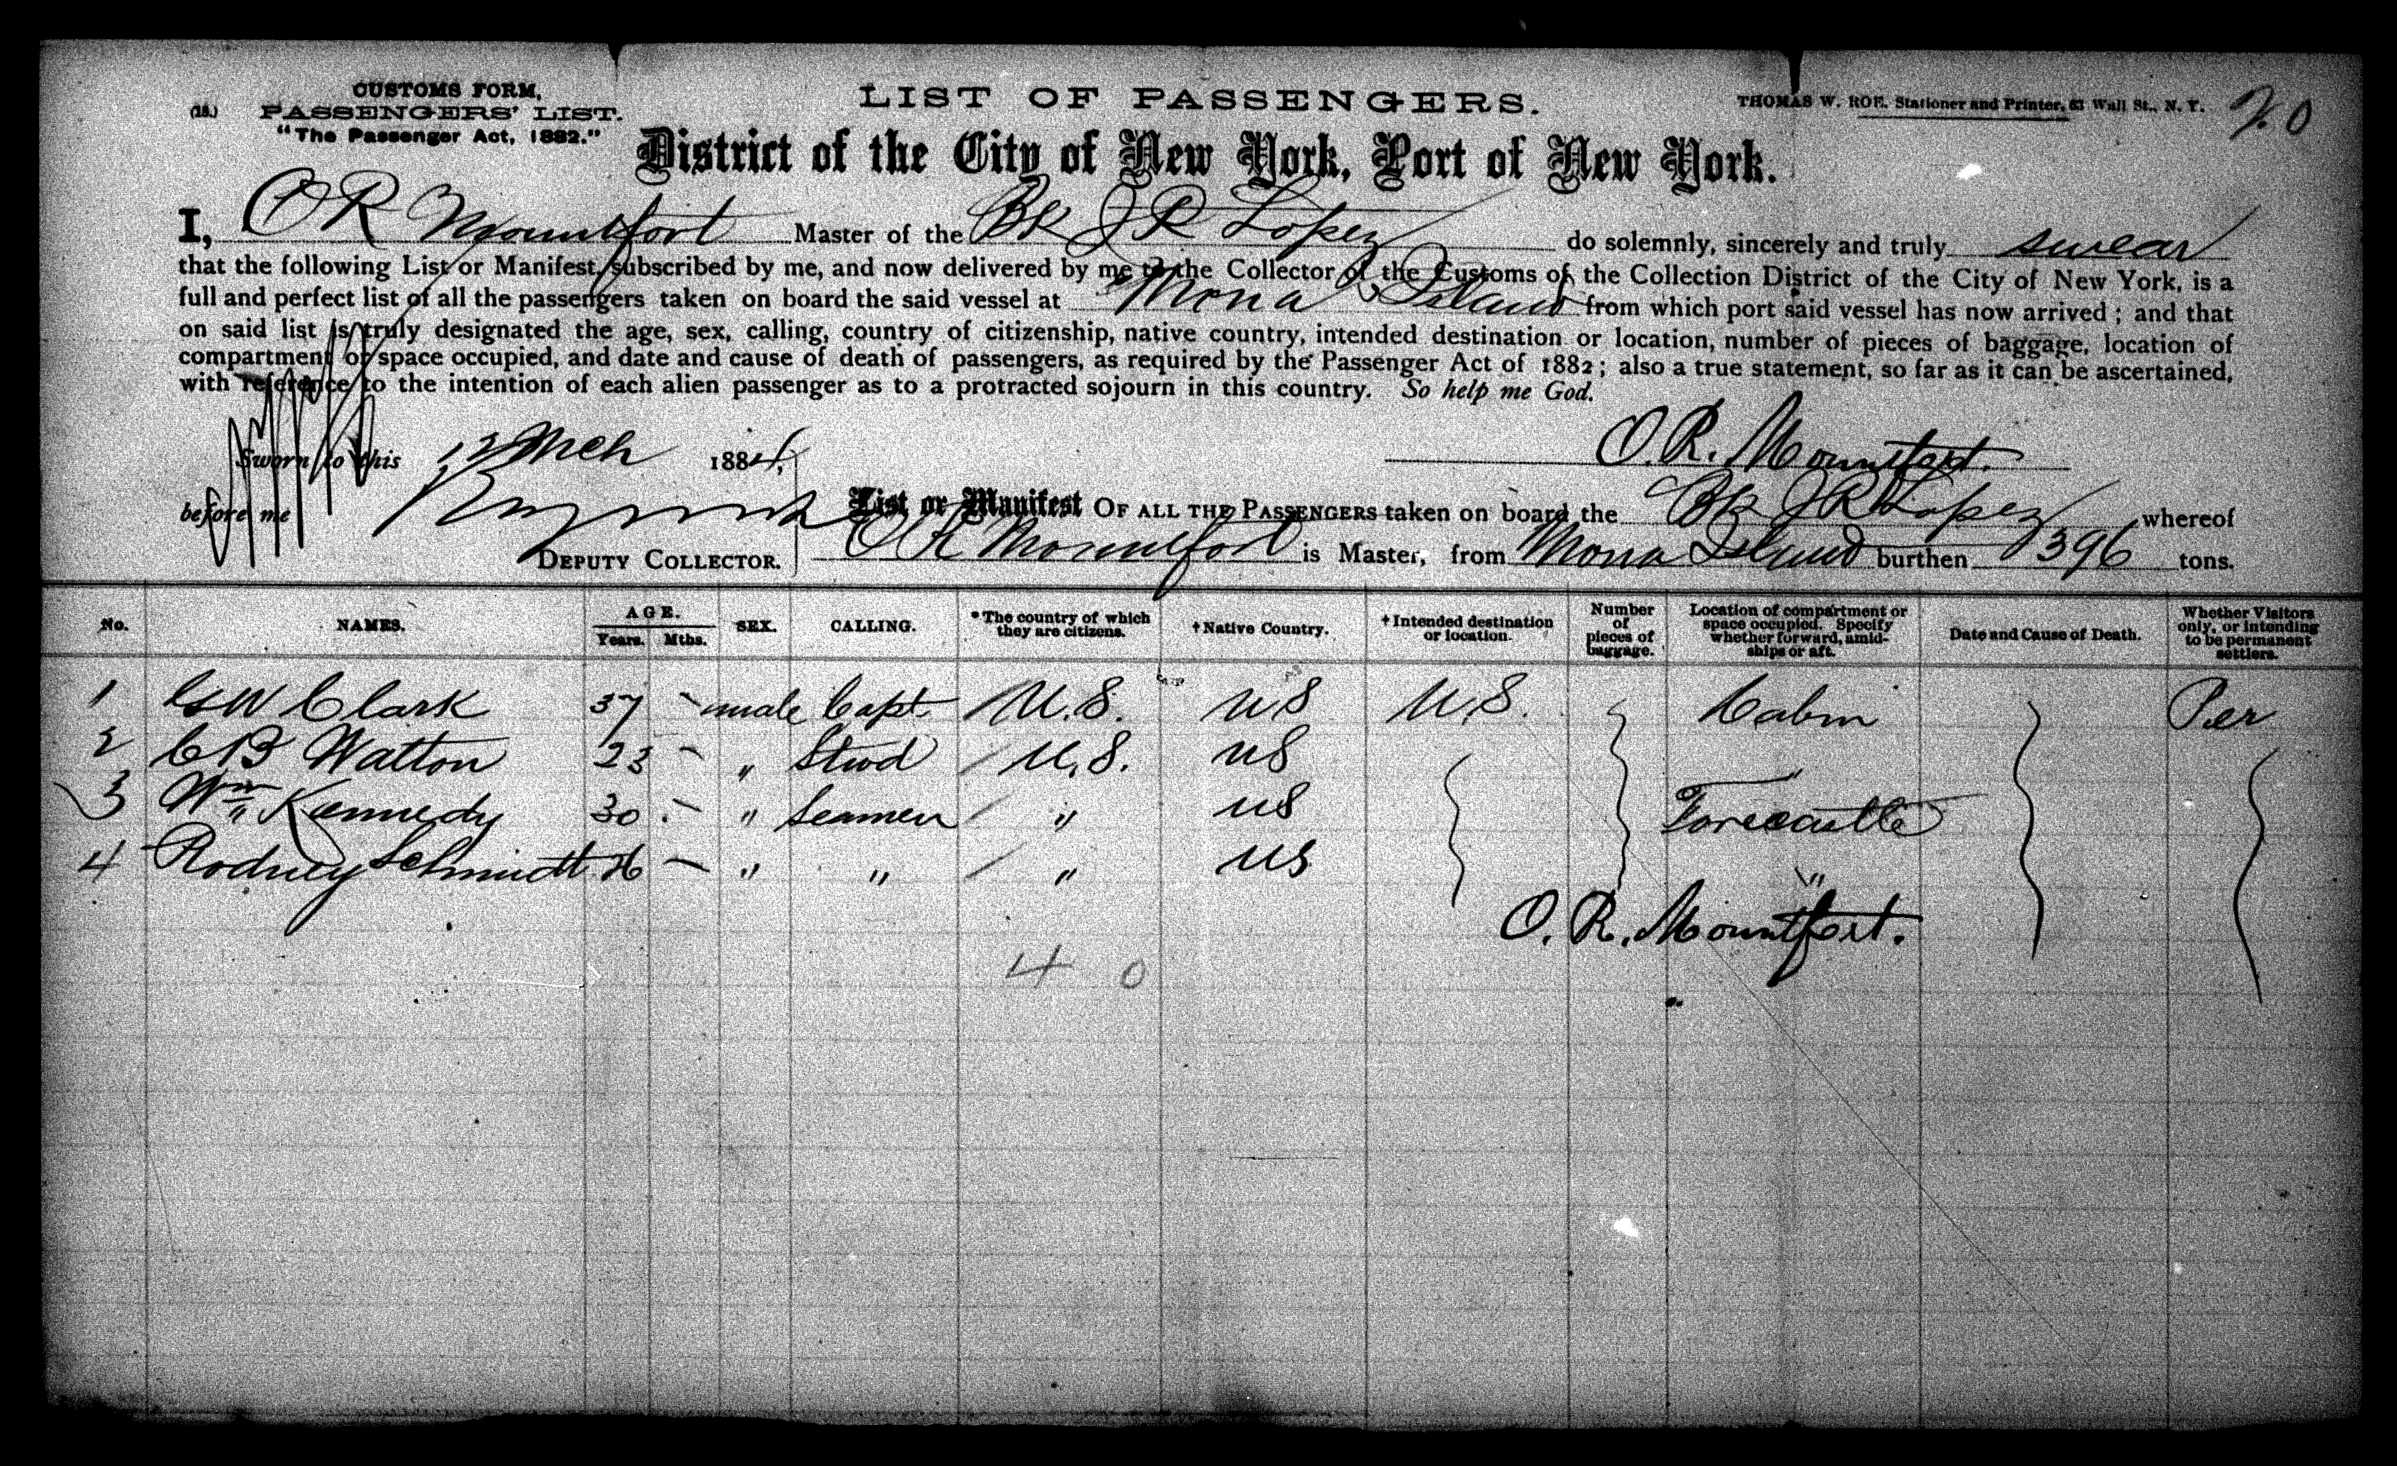 CUSTOMS FORM.
(18.) PASSENGERS' LIST.
"The Passenger Act, 1882."
LIST OF PASSENGERS.
THOMAS W. ROE, Stationer and Printer, 63 Wall St., N. Y.
20
District of the City of New York, Port of New York.
I, O R Mountfort Master of the Bk J R Lopez do solemnly, sincerely and truly swear
that the following List or Manifest, subscribed by me, and now delivered by me to the Collector of the Customs of the Collection District of the City of New York, is a
full and perfect list of all the passengers taken on board the said vessel at Mona Island from which port said vessel has now arrived; and that
on said list is truly designated the age, sex, calling, country of citizenship, native country, intended destination or location, number of pieces of baggage, location of
compartment or space occupied, and date and cause of death of passengers, as required by the Passenger Act of 1882; also a true statement, so far as it can be ascertained,
with reference to the intention of each alien passenger as to a protracted sojourn in this country. So help me God.
Sworn to this 12 Mch 1884, O. R. Mountfort.
before me
DEPUTY COLLECTOR.
List or Manifest OF ALL THE PASSENGERS taken on board the Bk J R Lopez whereof
O R Mountfort is Master, from Mona Island burthen 396 tons.
No. NAMES. AGE. Years. Mths. SEX. CALLING. *The country of which they are citizens. †Native Country. †Intended destination or location. Number of pieces of baggage. Location of compartment or space occupied. Specify whether forward, amidships or aft. Date and Cause of Death. Whether Visitors only, or intending to be permanent settlers.
1 GW Clark 37 - male Capt. U.S. US U.S. Cabin Per
2 CB Watton 23 - " Stwd U.S. US "
3 Wm Kennedy 30 - " Seamen " US Forecastle
4 Rodney Schmidt 26 - " " " US "
O. R. Mountfort.
4 0